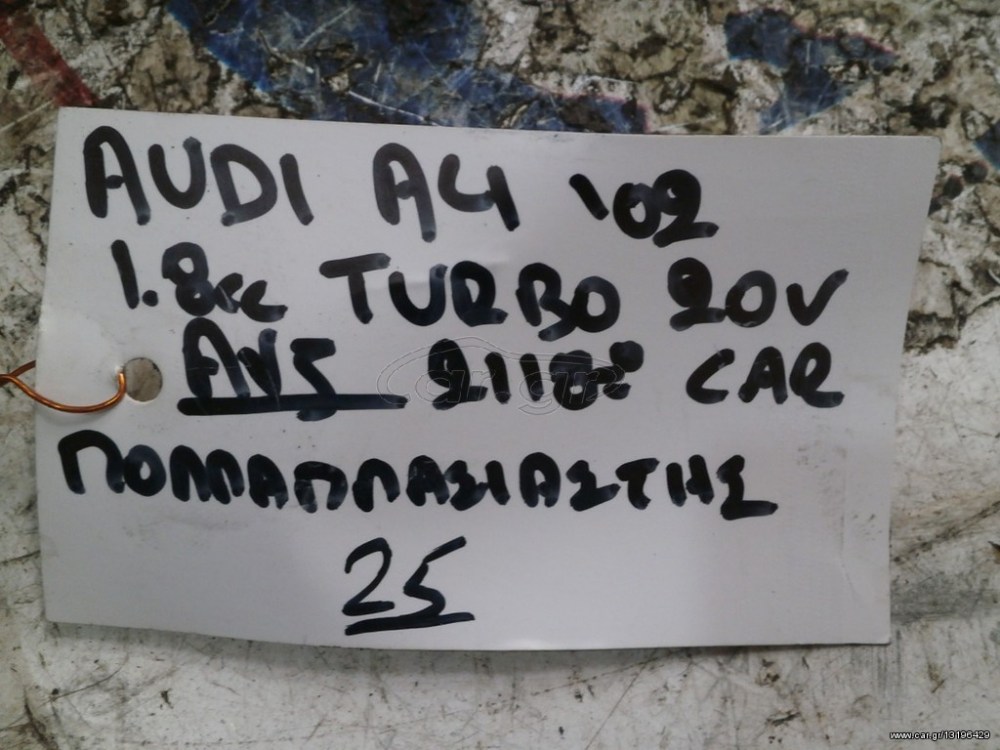 AUDI A4 '02
1.8cc TURBO 20V
CAR
ΠΟΛΛΑΠΛΑΣΙΑΣΤΗΣ
25
www.car.gr/13196429